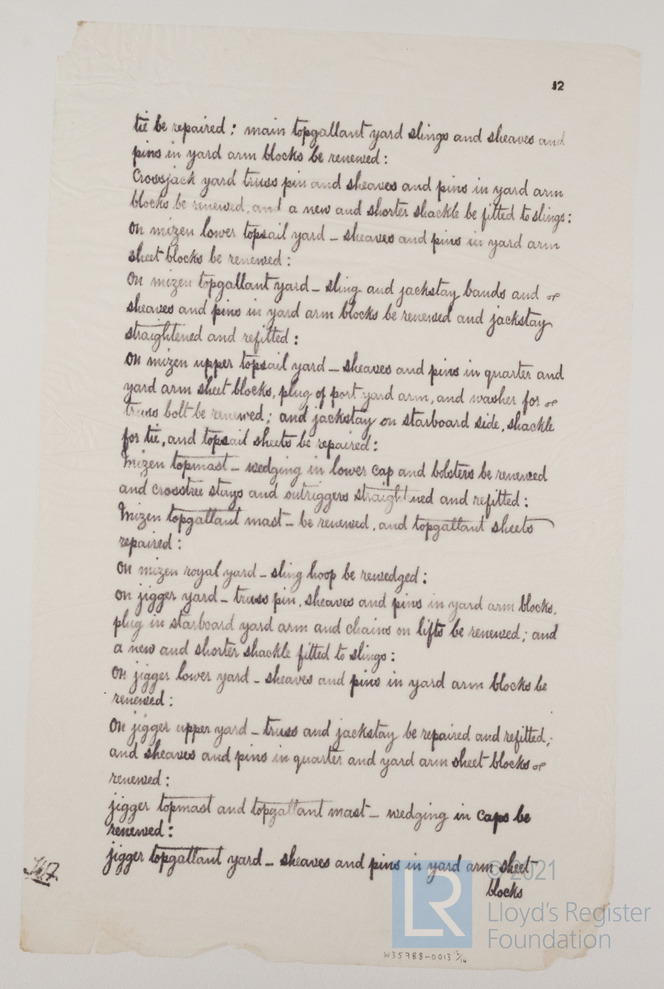 12
tie be repaired: main topgallant yard slings and sheaves and
pins in yard arm blocks be renewed:
Crossjack yard truss pin and sheaves and pins in yard arm
blocks be renewed, and a new and shorter shackle be fitted to slings:
On mizen lower topsail yard - sheaves and pins in yard arm
sheet blocks be renewed:
On mizen topgallant yard - sling and jackstay bands and
sheaves and pins in yard arm blocks be renewed and jackstay
straightened and refitted:
On mizen upper topsail yard - sheaves and pins in quarter and
yard arm sheet blocks, plug of port yard arm, and washer for
truss bolt be renewed; and jackstay on starboard side, shackle
for tie, and topsail sheets be repaired:
Mizen topmast - wedging in lower cap and bolsters be renewed
and crosstree stays and outriggers straightned and refitted:
Mizen topgallant mast - be renewed, and topgallant sheets
repaired:
On mizen royal yard - sling hoop be rewedged:
On jigger yard - truss pin, sheaves and pins in yard arm blocks,
plug in starboard yard arm and chains on lifts be renewed; and
a new and shorter shackle fitted to slings:
On jigger lower yard - sheaves and pins in yard arm blocks be
renewed:
On jigger upper yard - truss and jackstay be repaired and refitted;
and sheaves and pins in quarter and yard arm sheet blocks
renewed:
jigger topmast and topgallant mast - wedging in caps be
renewed:
jigger topgallant yard - sheaves and pins in yard arm sheet
blocks
LR
© 2021
Lloyd's Register
Foundation
W35788-0013